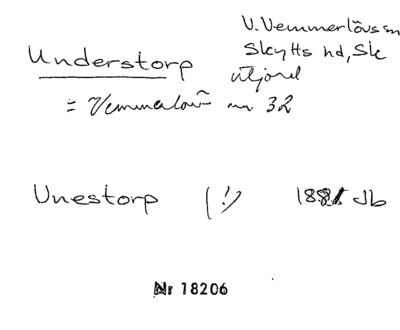 V. Vemmerlövs sn
Skytts hd, Sk
Understorp utjord
= Vemmerlöv nr 32
Unestorp (!) 1881 Jb
Nr 18206